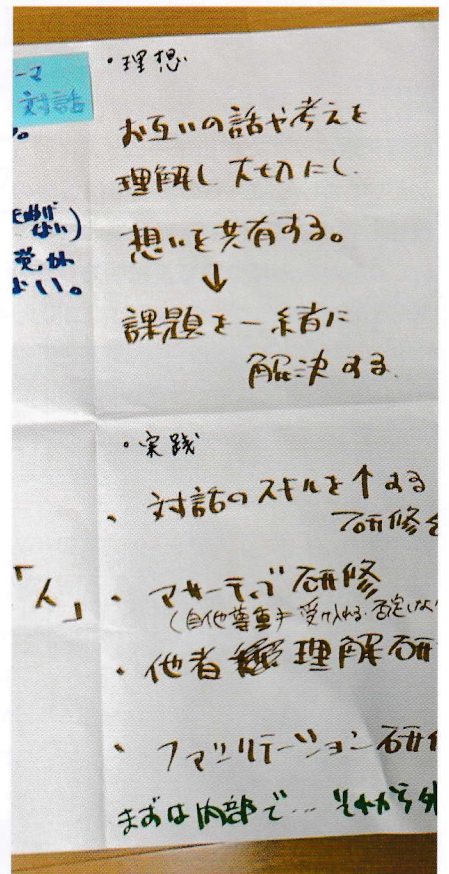 ーマ
対話
ない)
・理想
お互いの話や考えを
理解し大切にし
想いを共有する。
↓
課題を一緒に
解決する
・実践
、対話のスキルを↑する
研修を
「人」
・アサーティブ研修
(自他尊重 受け入れる 否定しない
・他者理解研
、ファシリテーション研修
まずは内部で… それから外